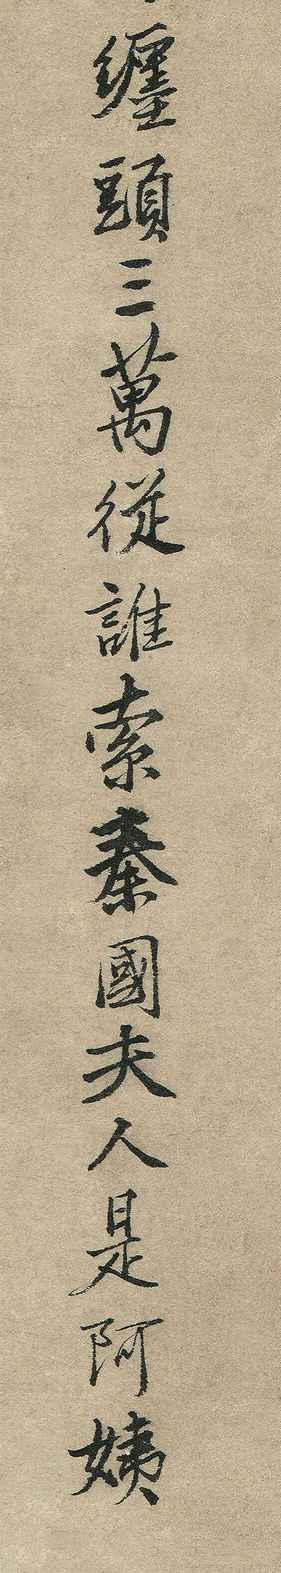 纏頭三萬從誰索秦國夫人是阿姨